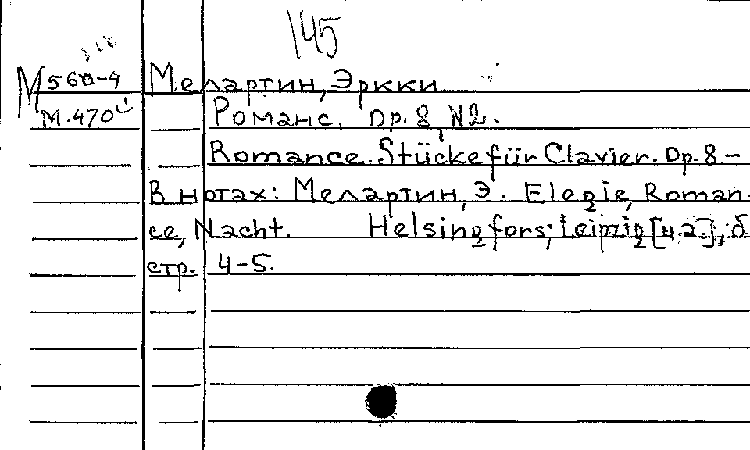 145
М 560-4 Мелартин, Эркки
М.470 Романс. Op. 8, N2.
Romance. Stücke für Clavier. Op. 8 –
В нотах: Мелартин, Э. Elegie, Roman-
ce, Nacht. Helsingfors; Leipzig [4,2.], б
стр. 4-5.